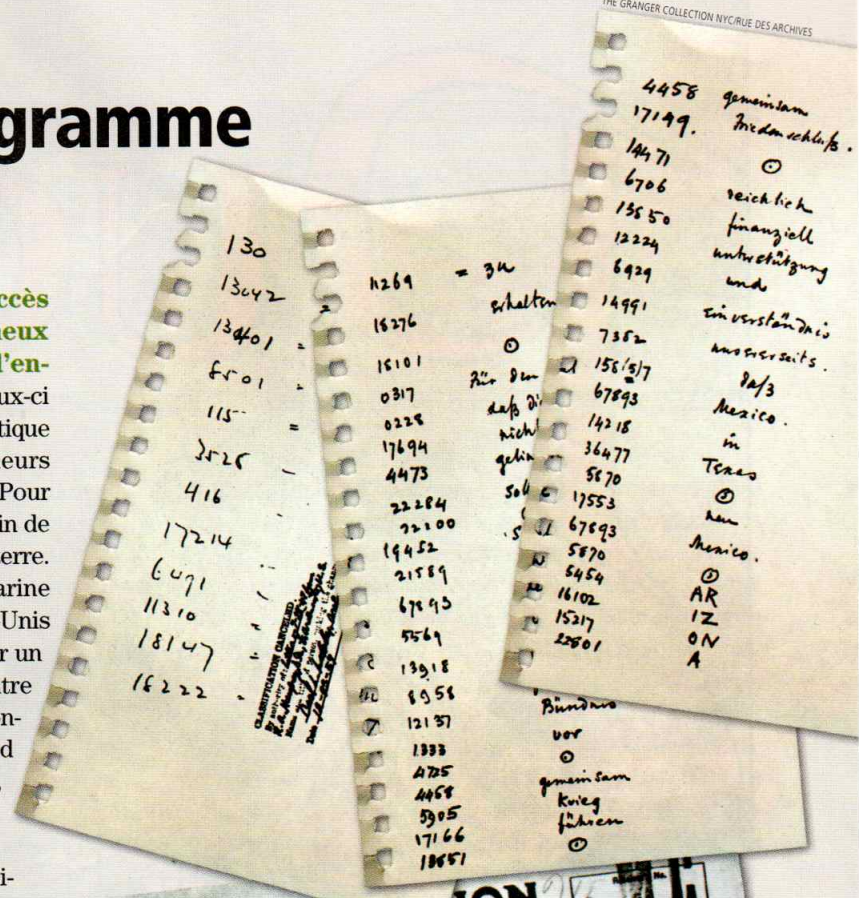 THE GRANGER COLLECTION NYC/RUE DES ARCHIVES
gramme
ccès
neux
l'en-
ux-ci
tique
eurs
Pour
in de
terre.
arine
Unis
r un
tre
on-
d
i-
130
13042
13401 =
8501 =
115 =
3528 -
416
17214
6491
11310
18147 =
18222 =
CLASSIFICATION CANCELED
11269 = zu
18276 erhalten
18101 ⊙
0317 Für den
0228 daß di
17694 nich
4473 gelin
22284 sol
22200
19452
21589
67893
5569
13918
8958 Bündnis
12137 vor
1333 ⊙
4725 gemeinsam
4458 Krieg
5905 führen
17166 ⊙
13851
4458 gemeinsam
17149. Friedenschluß.
14471 ⊙
6706 reichlich
13850 finanziell
12224 unterstützung
6929 und
14991 Einverständnis
7382 unsererseits.
158(5)7 daß
67893 Mexico.
14218 in
36477 Texas
5870 ⊙
17553 neu
67893 Mexico.
5870 ⊙
5454 AR
16102 IZ
15217 ON
22801 A
ION